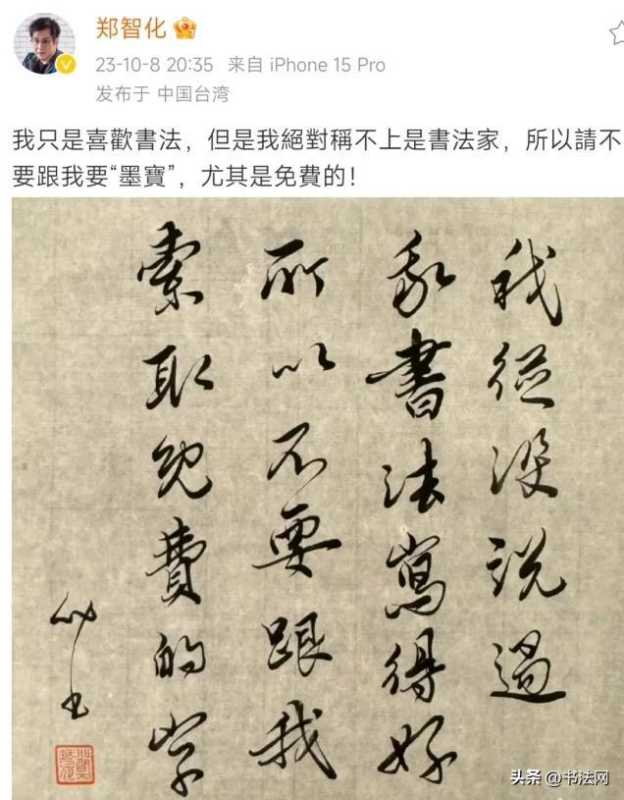 郑智化
23-10-8 20:35 来自 iPhone 15 Pro
发布于 中国台湾
我只是喜歡書法，但是我絕對稱不上是書法家，所以請不
要跟我要“墨寶”，尤其是免費的！
我從沒説過
我書法寫得好
所以不要跟我
索取免費的字
头条 @书法网